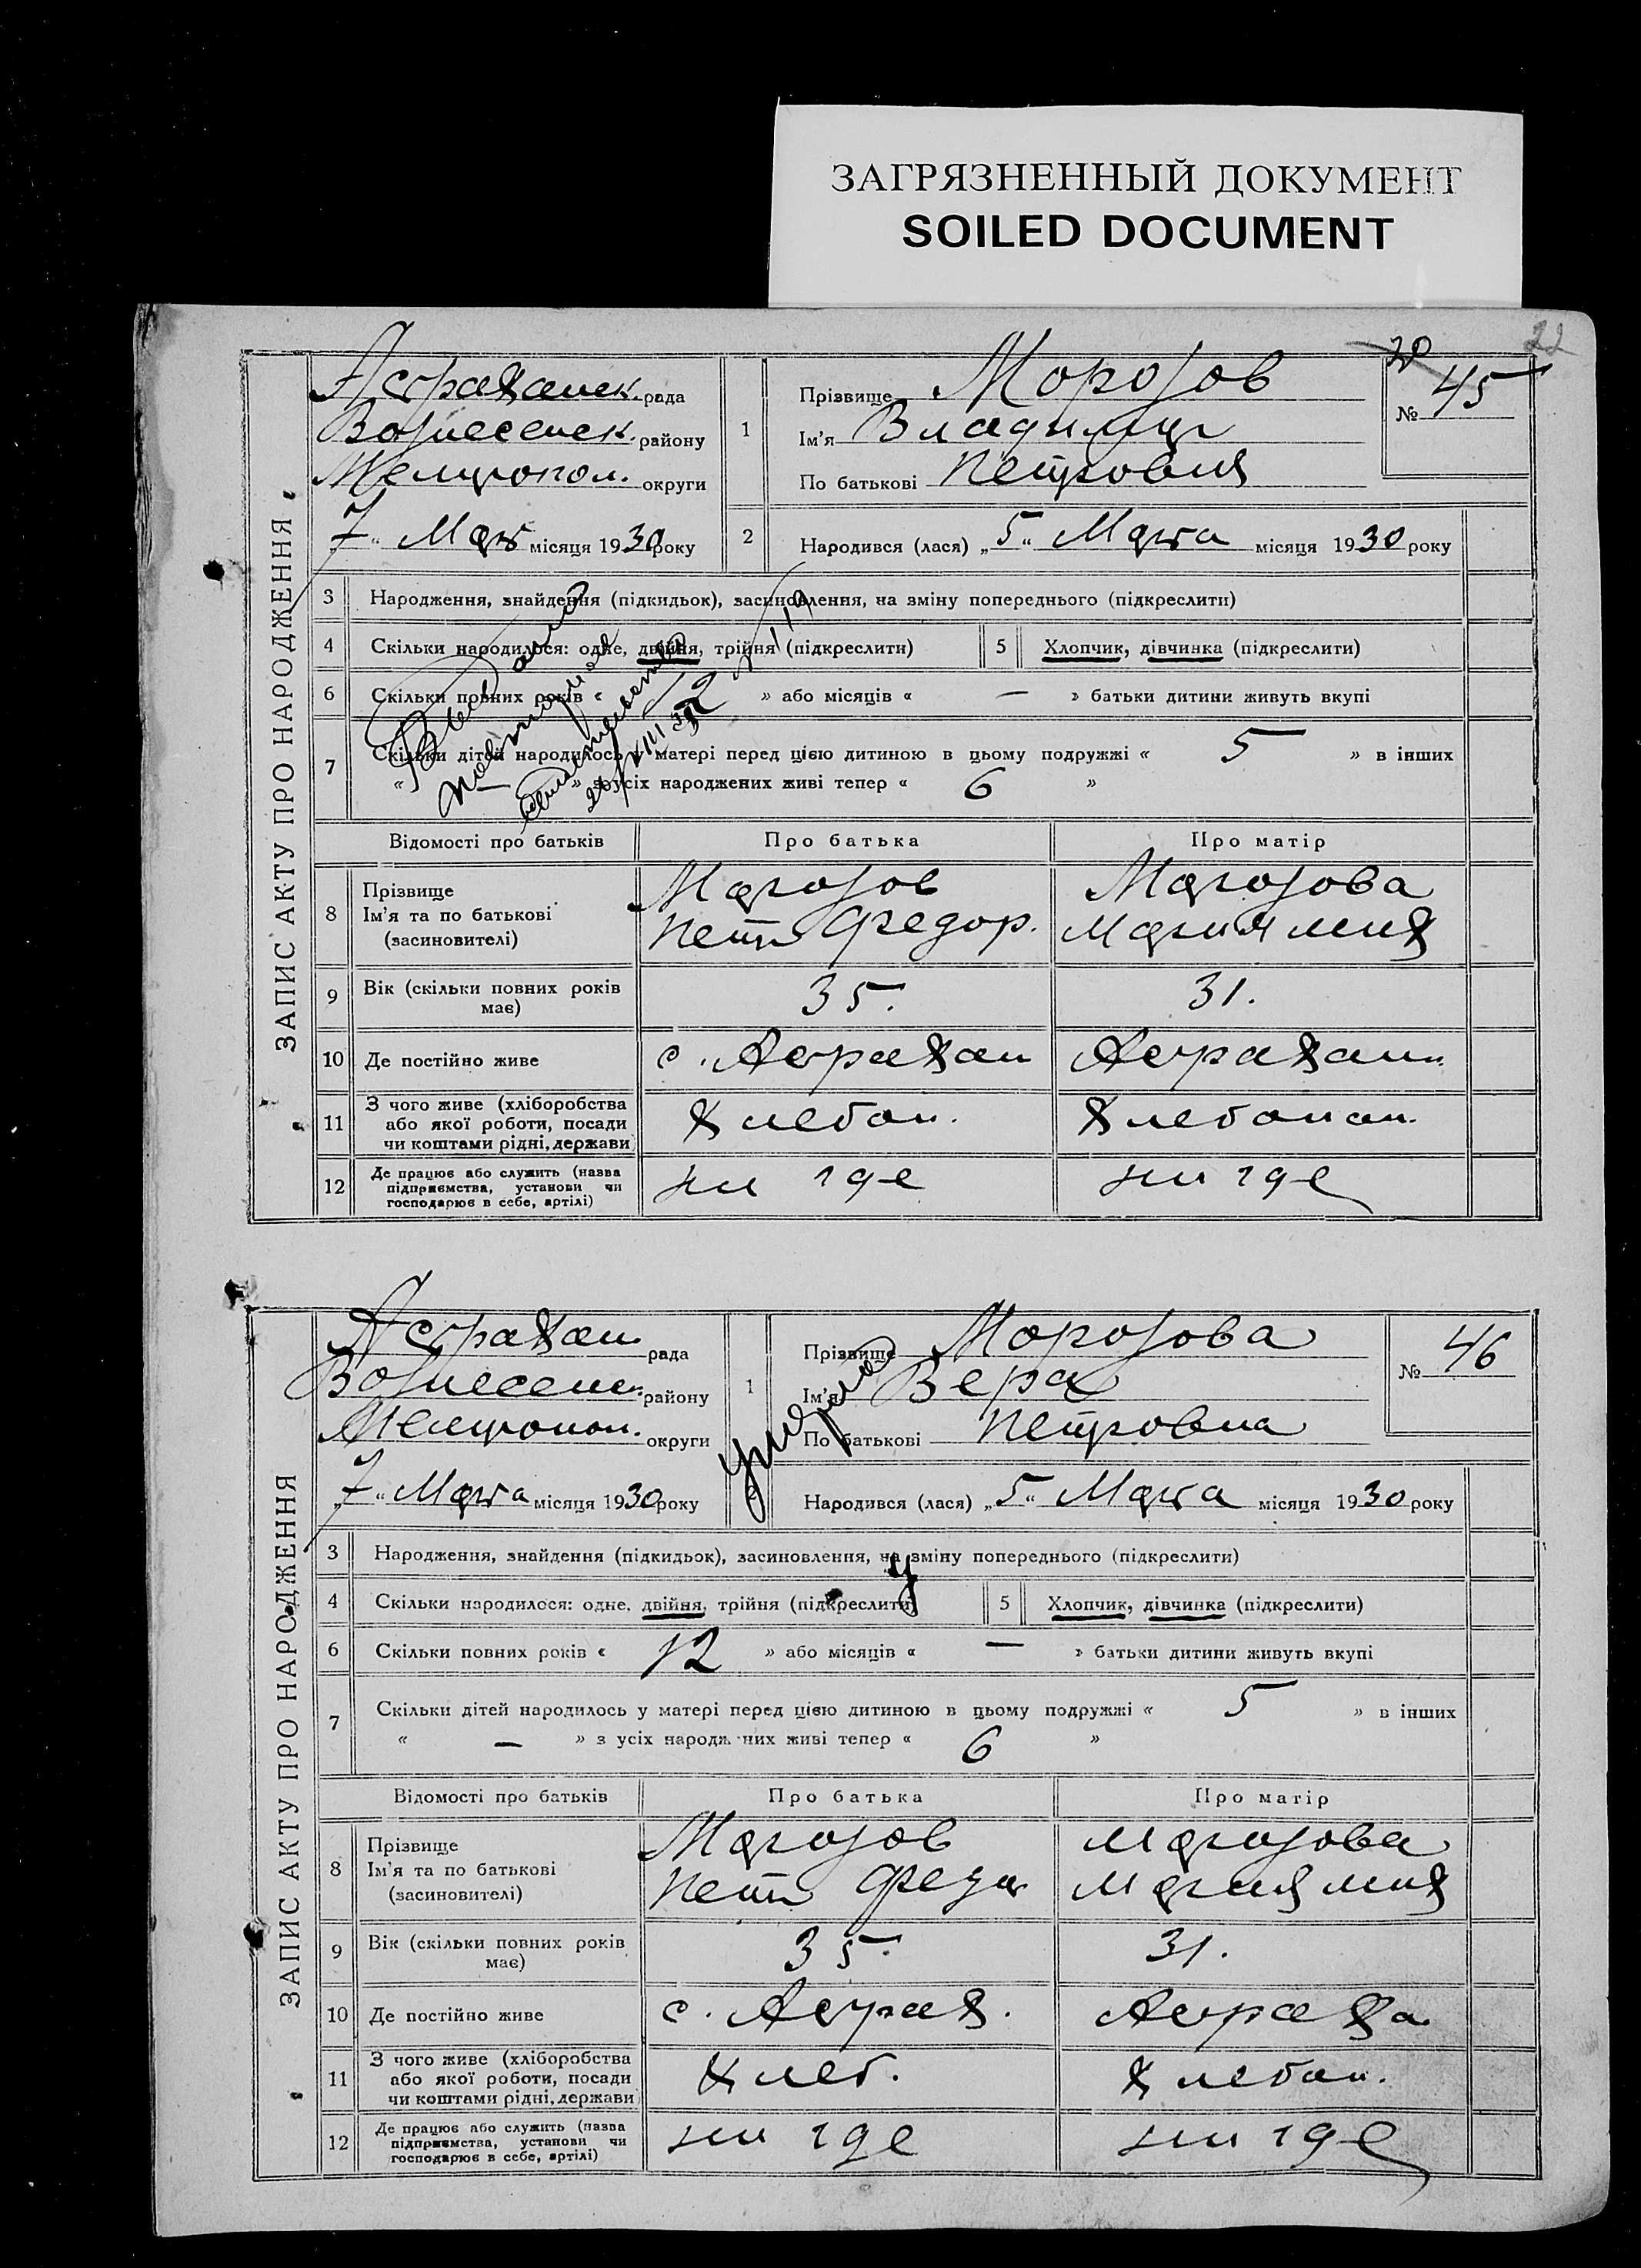 ЗАГРЯЗНЕННЫЙ ДОКУМЕНТ
SOILED DOCUMENT
22
20
ЗАПИС АКТУ ПРО НАРОДЖЕННЯ
Астраханск. рада
Вознесенск. району
Мелитопол. округи
„7“ Март місяця 1930 року
1
Прізвище Морозов
Ім'я Владимир
По батькові Петрович
№ 45
2 Народився (лася) „5“ Марта місяця 1930 року
3 Народження, знайдення (підкидьок), засиновлення, на зміну попереднього (підкреслити)
4 Скільки народилося: одне, двійня, трійня (підкреслити) 5 Хлопчик, дівчинка (підкреслити)
6 Скільки повних років « 12 » або місяців « — » батьки дитини живуть вкупі
7 Скільки дітей народилось у матері перед цією дитиною в цьому подружжі « 5 » в інших
« — » з усіх народжених живі тепер « 6 »
Выдано
повторное
свидетельство
Відомості про батьків Про батька Про матір
8 Прізвище Морозов Морозова
Ім'я та по батькові Петр Федор.
(засиновителі)
9 Вік (скільки повних років має) 35. 31.
10 Де постійно живе с. Астрахан Астрахан.
11 З чого живе (хліборобства або якої роботи, посади чи коштами рідні, держави Хлебоп. Хлебопаш.
12 Де працює або служить (назва підприємства, установи чи господарює в себе, артілі) ни где ни где
ЗАПИС АКТУ ПРО НАРОДЖЕННЯ
Астрахан. рада
Вознесенс. району
Мелитопол. округи
„7“ Марта місяця 1930 року
1
Прізвище Морозова
Ім'я Вера
По батькові Петровна
№ 46
Умерла
2 Народився (лася) „5“ Марта місяця 1930 року
3 Народження, знайдення (підкидьок), засиновлення, на зміну попереднього (підкреслити)
4 Скільки народилося: одне, двійня, трійня (підкреслити) 5 Хлопчик, дівчинка (підкреслити)
6 Скільки повних років « 12 » або місяців « — » батьки дитини живуть вкупі
7 Скільки дітей народилось у матері перед цією дитиною в цьому подружжі « 5 » в інших
« — » з усіх народжених живі тепер « 6 »
Відомості про батьків Про батька Про матір
8 Прізвище Морозов Морозова
Ім'я та по батькові Петр Федор
(засиновителі)
9 Вік (скільки повних років має) 35. 31.
10 Де постійно живе с. Астрах. Астраха.
11 З чого живе (хліборобства або якої роботи, посади чи коштами рідні, держави Хлеб. Хлебоп.
12 Де працює або служить (назва підприємства, установи чи господарює в себе, артілі) ни где ни где